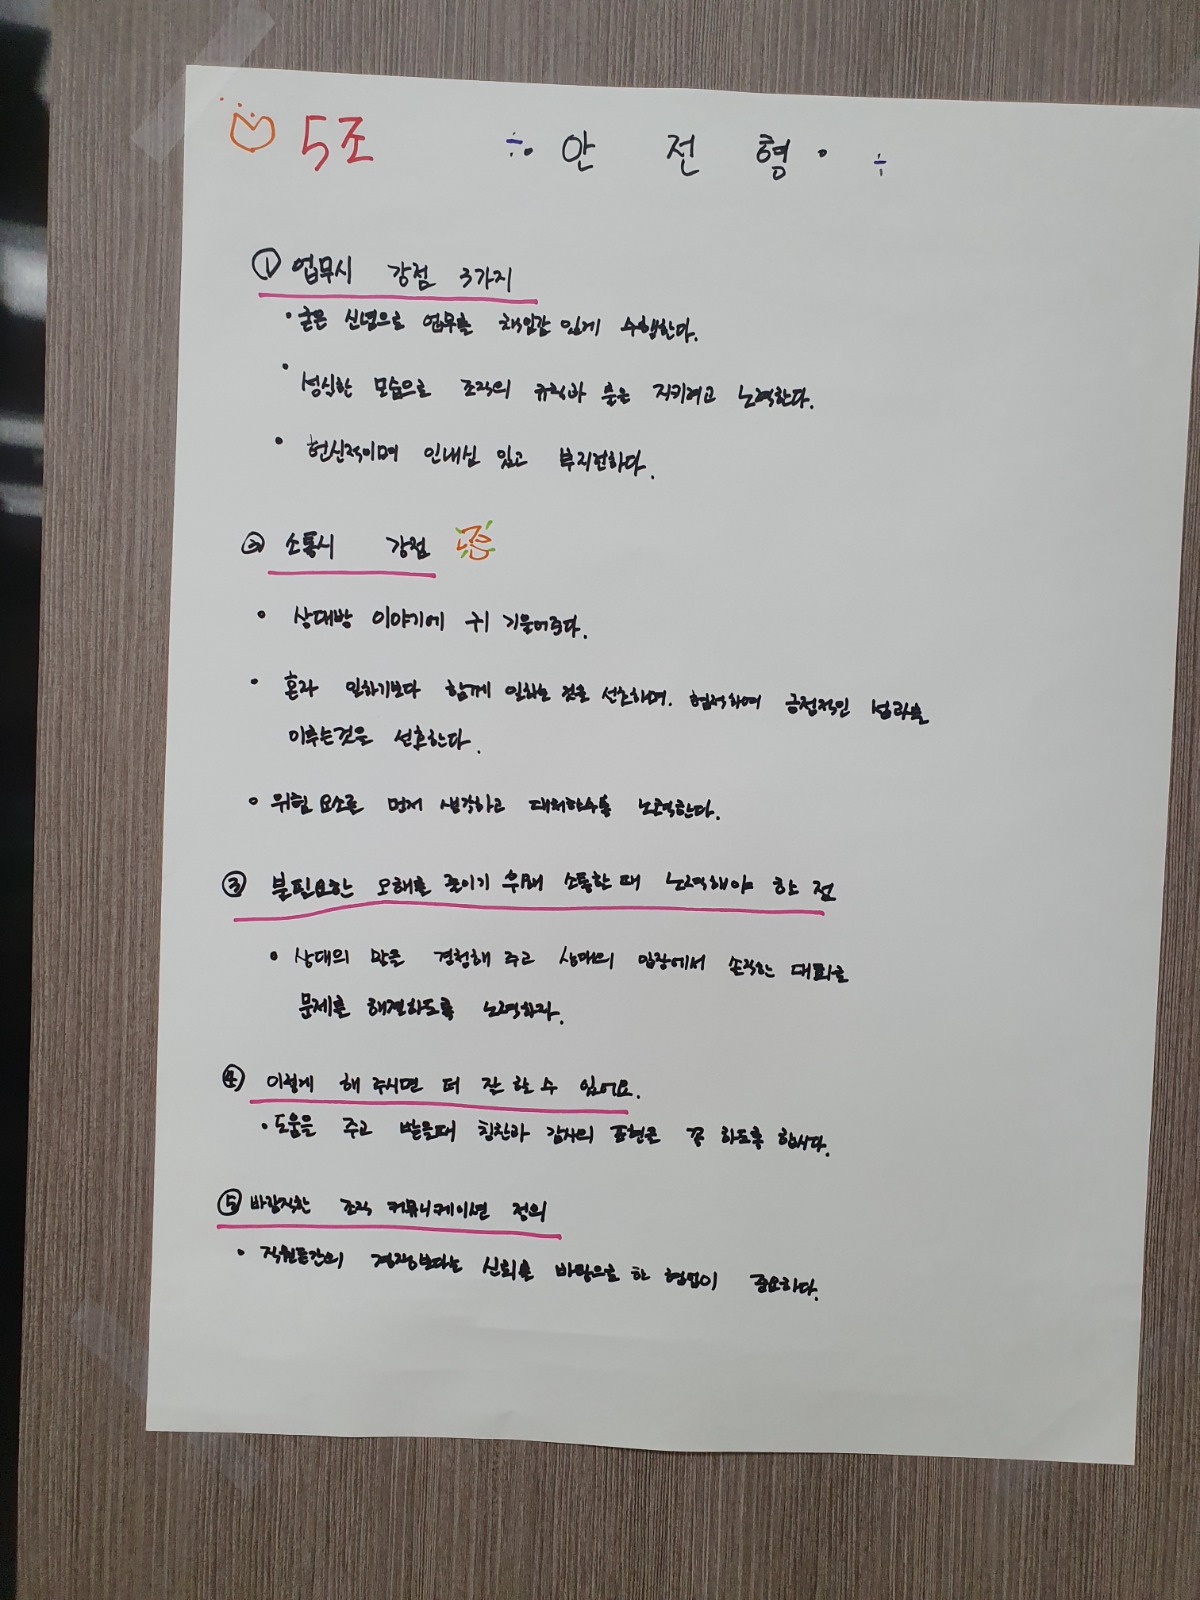 5조 안 전 형
① 업무시 강점 3가지
• 굳은 신념으로 업무를 책임감 있게 수행한다.
• 성실한 모습으로 조직의 규칙과 룰을 지키려고 노력한다.
• 헌신적이며 인내심 있고 부지런하다.
② 소통시 강점
• 상대방 이야기에 귀 기울여준다.
• 혼자 일하기보다 함께 일하는 것을 선호하며. 협력하여 긍정적인 성과를
이루는것을 선호한다.
• 위험 요소를 먼저 생각하고 대처하수록 노력한다.
③ 불필요한 오해를 줄이기 위해 소통할 때 노력해야 할 점
• 상대의 말을 경청해 주고 상대의 입장에서 솔직한 대화로
문제를 해결하도록 노력하자.
④ 이렇게 해 주시면 더 잘 할 수 있어요.
• 도움을 주고 받을때 칭찬과 감사의 표현은 꼭 하도록 합시다.
⑤ 바람직한 조직 커뮤니케이션 정의
• 직원들간의 경쟁보다는 신뢰를 바탕으로 한 협업이 중요하다.